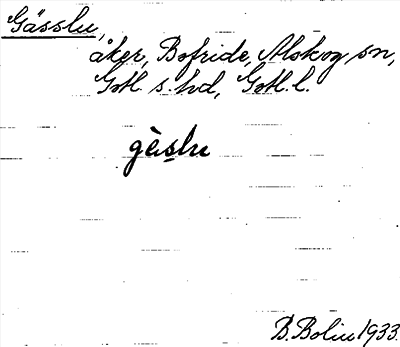 Gässlu,
åker, Bofride, Alskog sn,
Gotl. s. hd, Gotl. l.
gèslu
B. Bolin 1933.